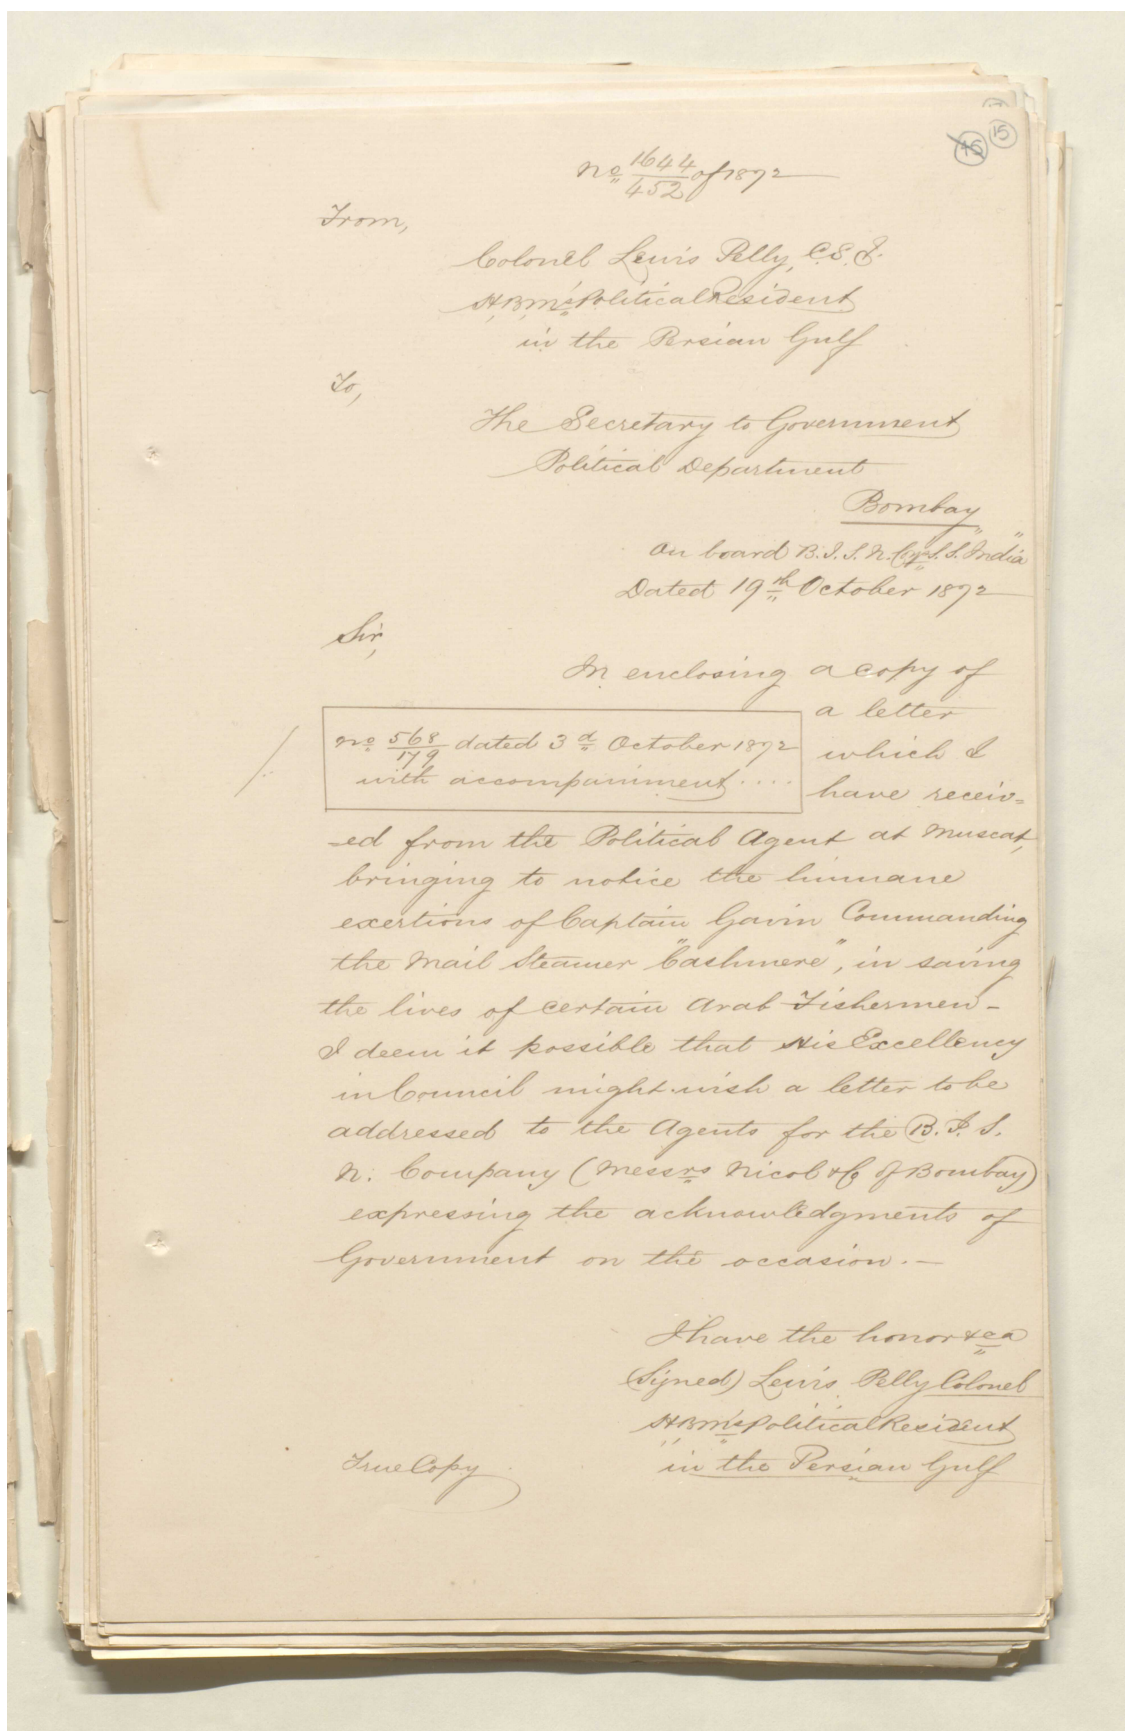 15
No 1644/452 of 1872
From,
Colonel Lewis Pelly, C.S.I.
H.B.M's Political Resident
in the Persian Gulf
To,
The Secretary to Government
Political Department
Bombay
On board B.I.S.N. Coy's S.S. "India"
Dated 19th October 1872
Sir,
In enclosing a copy of
a letter
No 568/179 dated 3d October 1872
which I
with accompaniment ....
have receiv=
=ed from the Political Agent at Muscat,
bringing to notice the humane
exertions of Captain Gavin Commanding
the Mail Steamer "Cashmere", in saving
the lives of certain Arab Fishermen -
I deem it possible that His Excellency
in Council might wish a letter to be
addressed to the Agents for the B.I.S.
N. Company (Messrs Nicol & Co of Bombay)
expressing the acknowledgments of
Government on the occasion. -
I have the honor &ca
(Signed) Lewis Pelly Colonel
H.B.M's Political Resident
in the Persian Gulf
True Copy